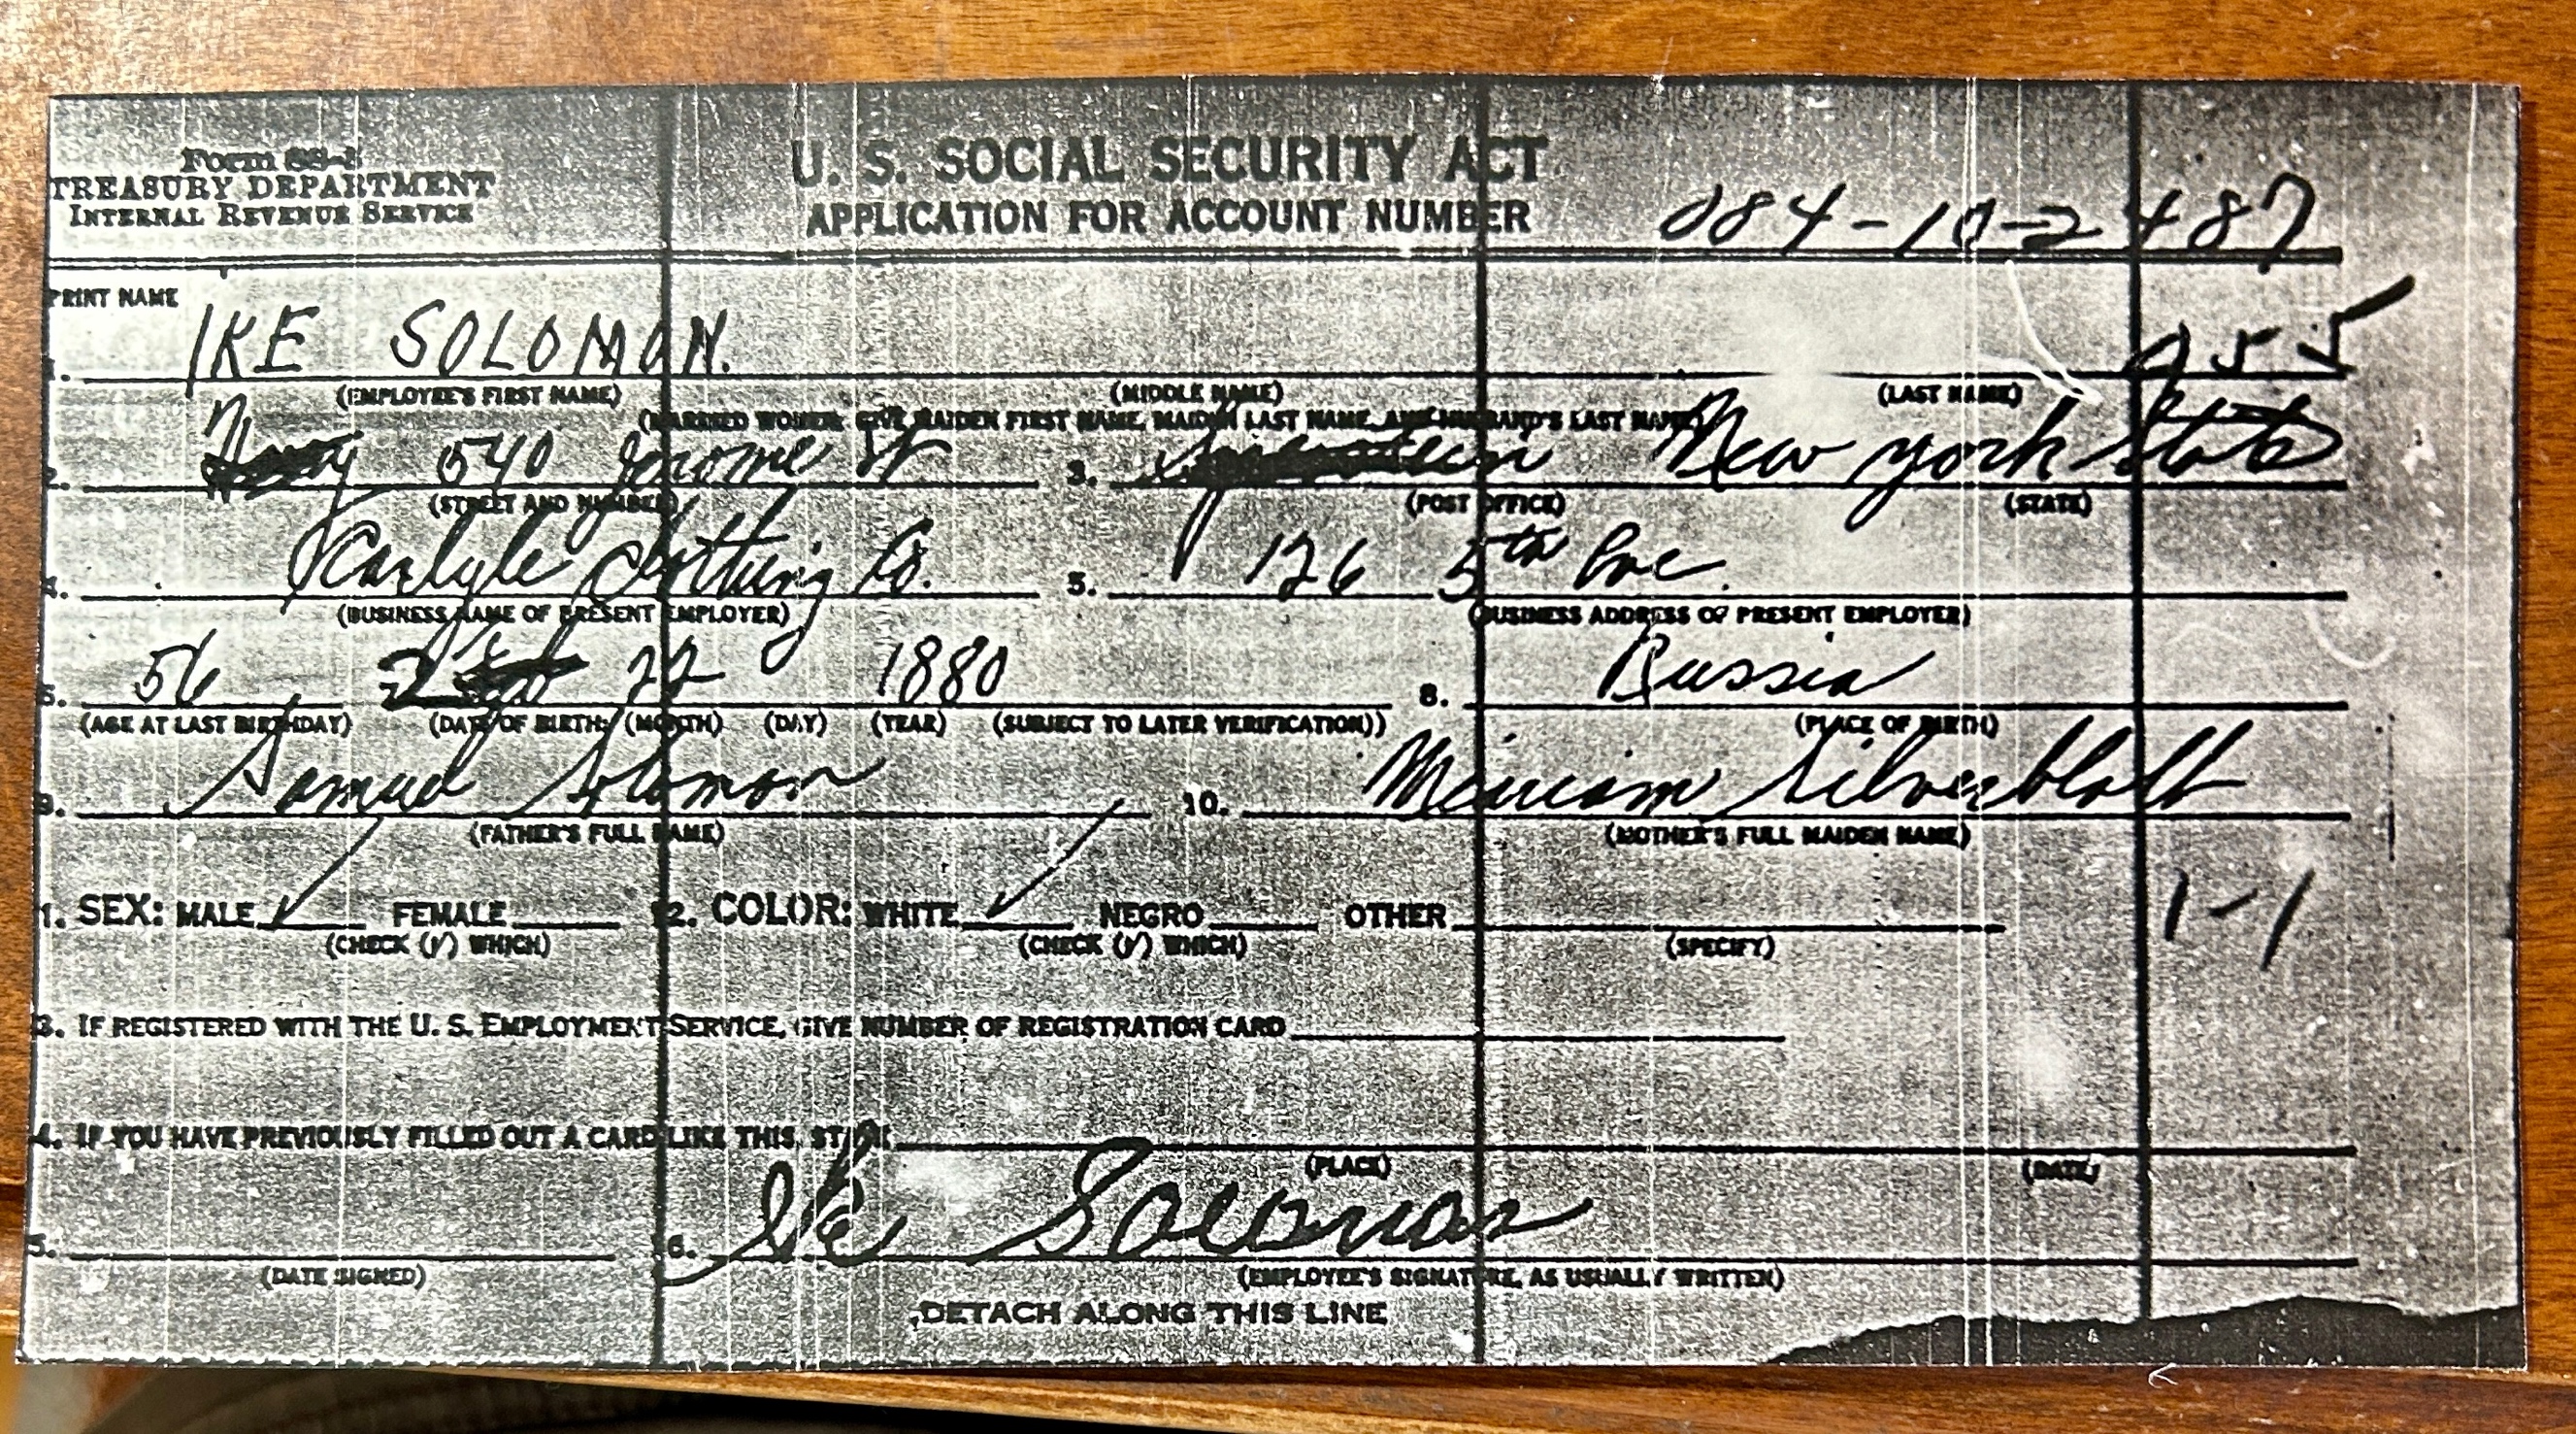 Form SS-5
TREASURY DEPARTMENT
INTERNAL REVENUE SERVICE
U. S. SOCIAL SECURITY ACT
APPLICATION FOR ACCOUNT NUMBER
084-10-2487
PRINT NAME
1. IKE SOLOMON.
(EMPLOYEE'S FIRST NAME) (MIDDLE NAME) (LAST NAME)
(MARRIED WOMEN: GIVE MAIDEN FIRST NAME, MAIDEN LAST NAME, AND HUSBAND'S LAST NAME)
2. 540 Jerome St 3. New York State
(STREET AND NUMBER) (POST OFFICE) (STATE)
4. Carlyle Clothing Co. 5. 126 5th Ave.
(BUSINESS NAME OF PRESENT EMPLOYER) (BUSINESS ADDRESS OF PRESENT EMPLOYER)
6. 56 2 22 1880 8. Russia
(AGE AT LAST BIRTHDAY) (DATE OF BIRTH: (MONTH) (DAY) (YEAR) (SUBJECT TO LATER VERIFICATION)) (PLACE OF BIRTH)
9. Samuel Solomon 10. Miriam Silverblatt
(FATHER'S FULL NAME) (MOTHER'S FULL MAIDEN NAME)
1. SEX: MALE ✓ FEMALE 12. COLOR: WHITE ✓ NEGRO OTHER 1-1
(CHECK (✓) WHICH) (CHECK (✓) WHICH) (SPECIFY)
3. IF REGISTERED WITH THE U. S. EMPLOYMENT SERVICE, GIVE NUMBER OF REGISTRATION CARD
4. IF YOU HAVE PREVIOUSLY FILLED OUT A CARD LIKE THIS, STATE
(PLACE) (DATE)
5. 6. Ike Solomon
(DATE SIGNED) (EMPLOYEE'S SIGNATURE, AS USUALLY WRITTEN)
DETACH ALONG THIS LINE